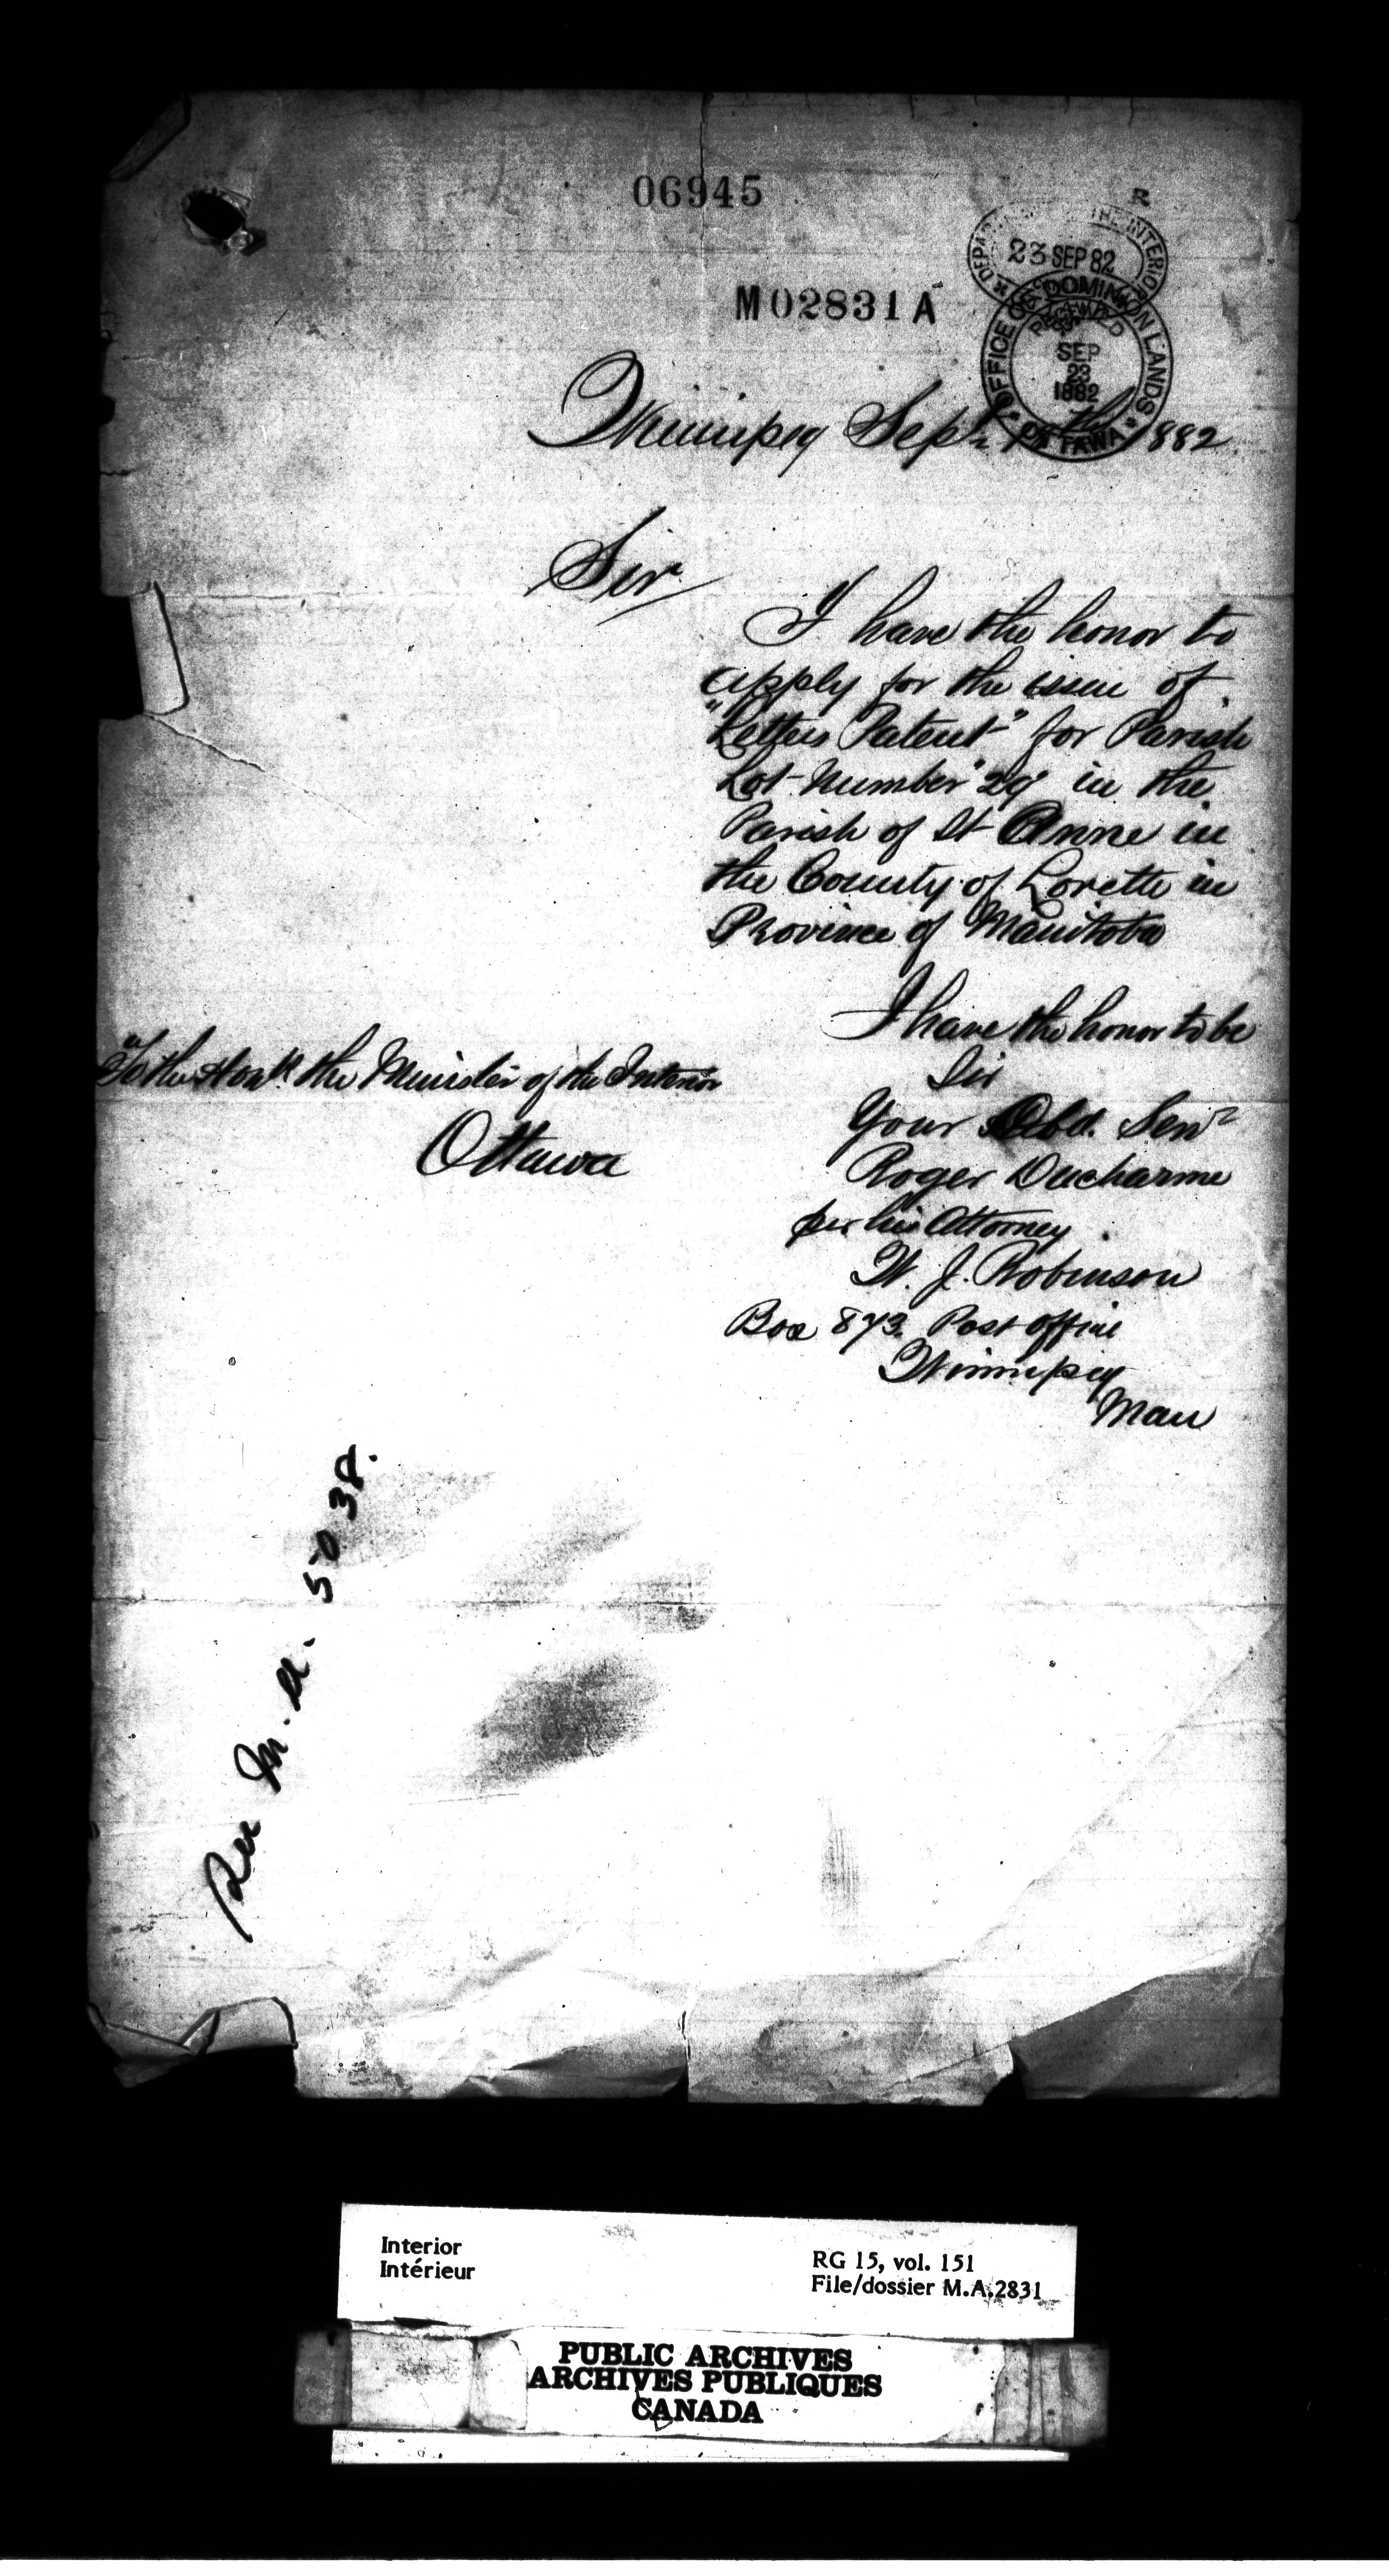 06945
R
DEPARTMENT OF THE INTERIOR
23 SEP 82
M02831A
OFFICE OF DOMINION LANDS
RECEIVED
SEP
23
1882
OTTAWA
Winnipeg Sept th 1882
Sir
I have the honor to
apply for the issue of
"Letters Patent" for Parish
Lot Number "29" in the
Parish of St Anne in
the County of Lorette in
Province of Manitoba
I have the honor to be
Sir
To the Honble the Minister of the Interior
Ottawa
Your Obd. Servt
Roger Ducharme
per his Attorney
W. J. Robinson
Box 873. Post Office
Winnipeg
Man
M.A. 5038.
Interior
Intérieur
RG 15, vol. 151
File/dossier M.A.2831
PUBLIC ARCHIVES
ARCHIVES PUBLIQUES
CANADA